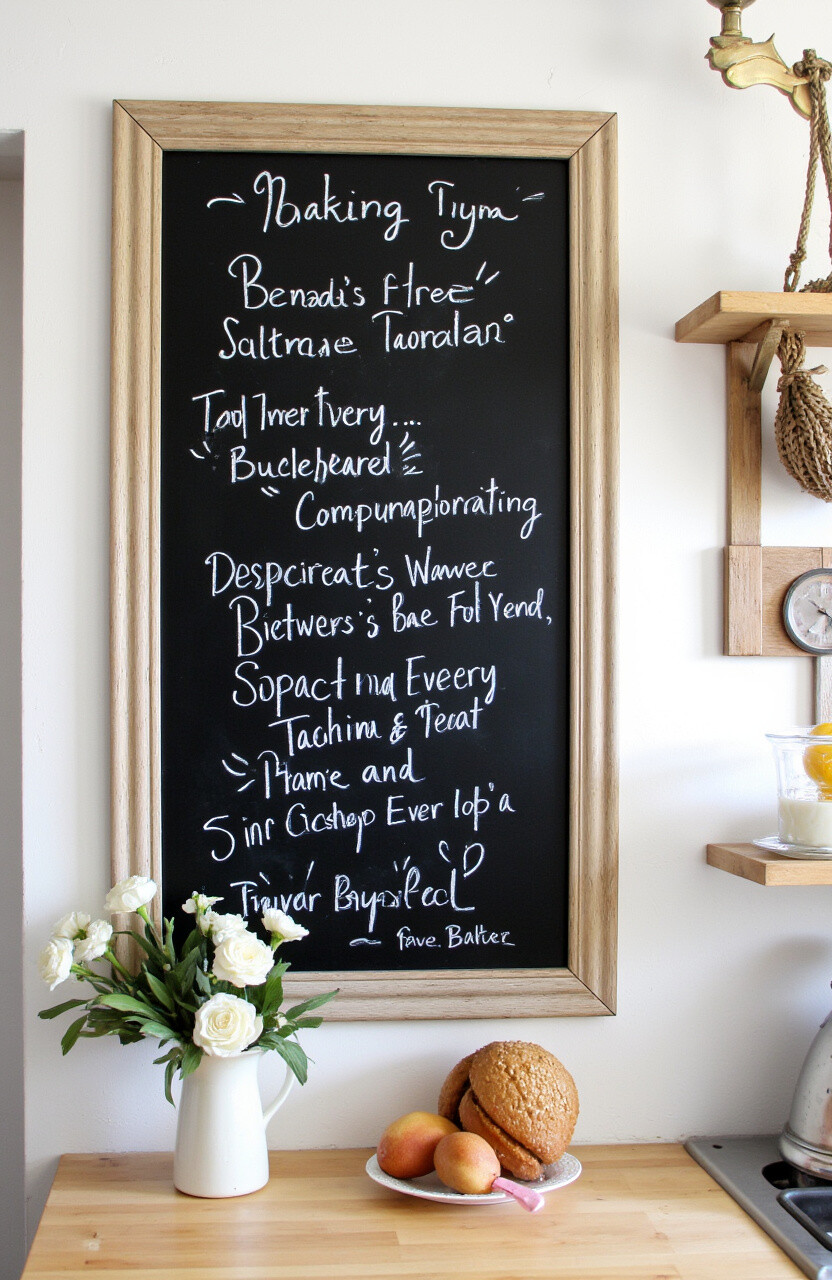 Baking Tiyna
Benadi's flree
Saltrnae Taoralan
Tod Iwer tvery....
Buclehearel
Compunapiorrating
Despcireat's Wawee
Bietwers's Bae Fol Yend,
Sopact ina Eveery
Tachina & Teat
Hame and
5 inr Gcshop Ever lop'a
Tiuvar
fave. Balter